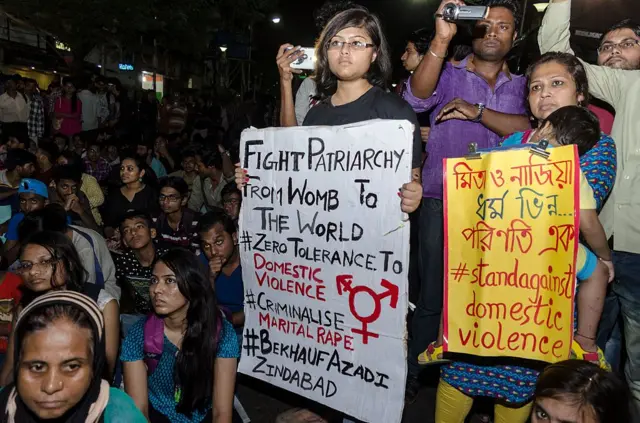 FIGHT PATRIARCHY
FROM WOMB TO
THE WORLD
#ZERO TOLERANCE TO
DOMESTIC
VIOLENCE
#CRIMINALISE
MARITAL RAPE
#BEKHAUF AZADI
ZINDABAD
মিতা ও নাজিয়া
ধর্ম ভিন্ন...
পরিণতি এক
#standagainst
domestic
violence